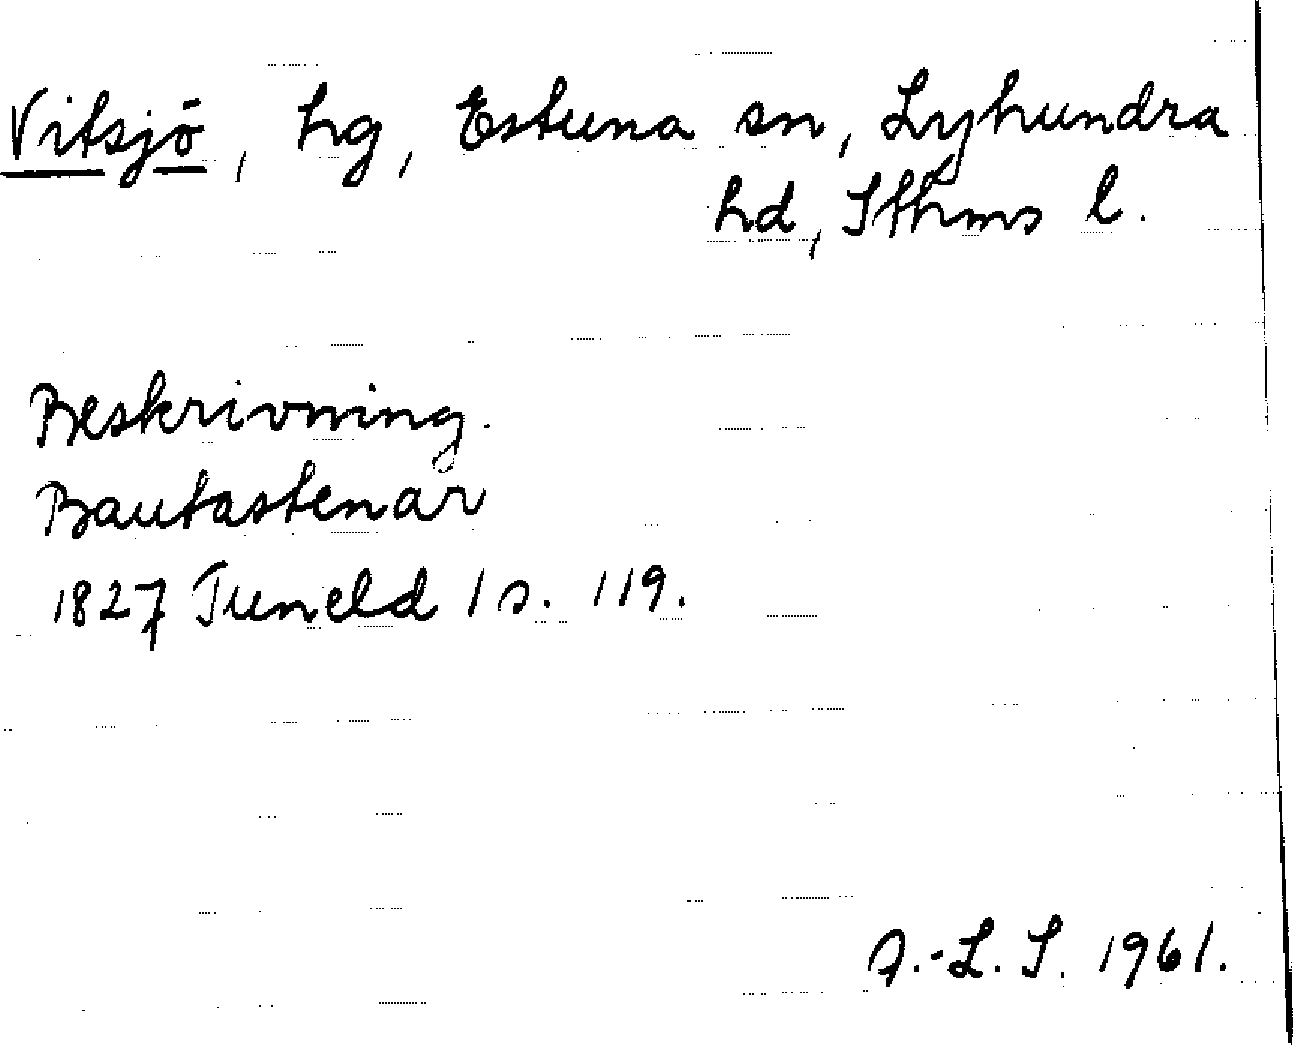 Vitsjö, hg, Estuna sn, Lyhundra
hd, Sthms l.
Beskrivning.
Bautastenar
1827 Tuneld 1 s. 119.
A.-L. S. 1961.